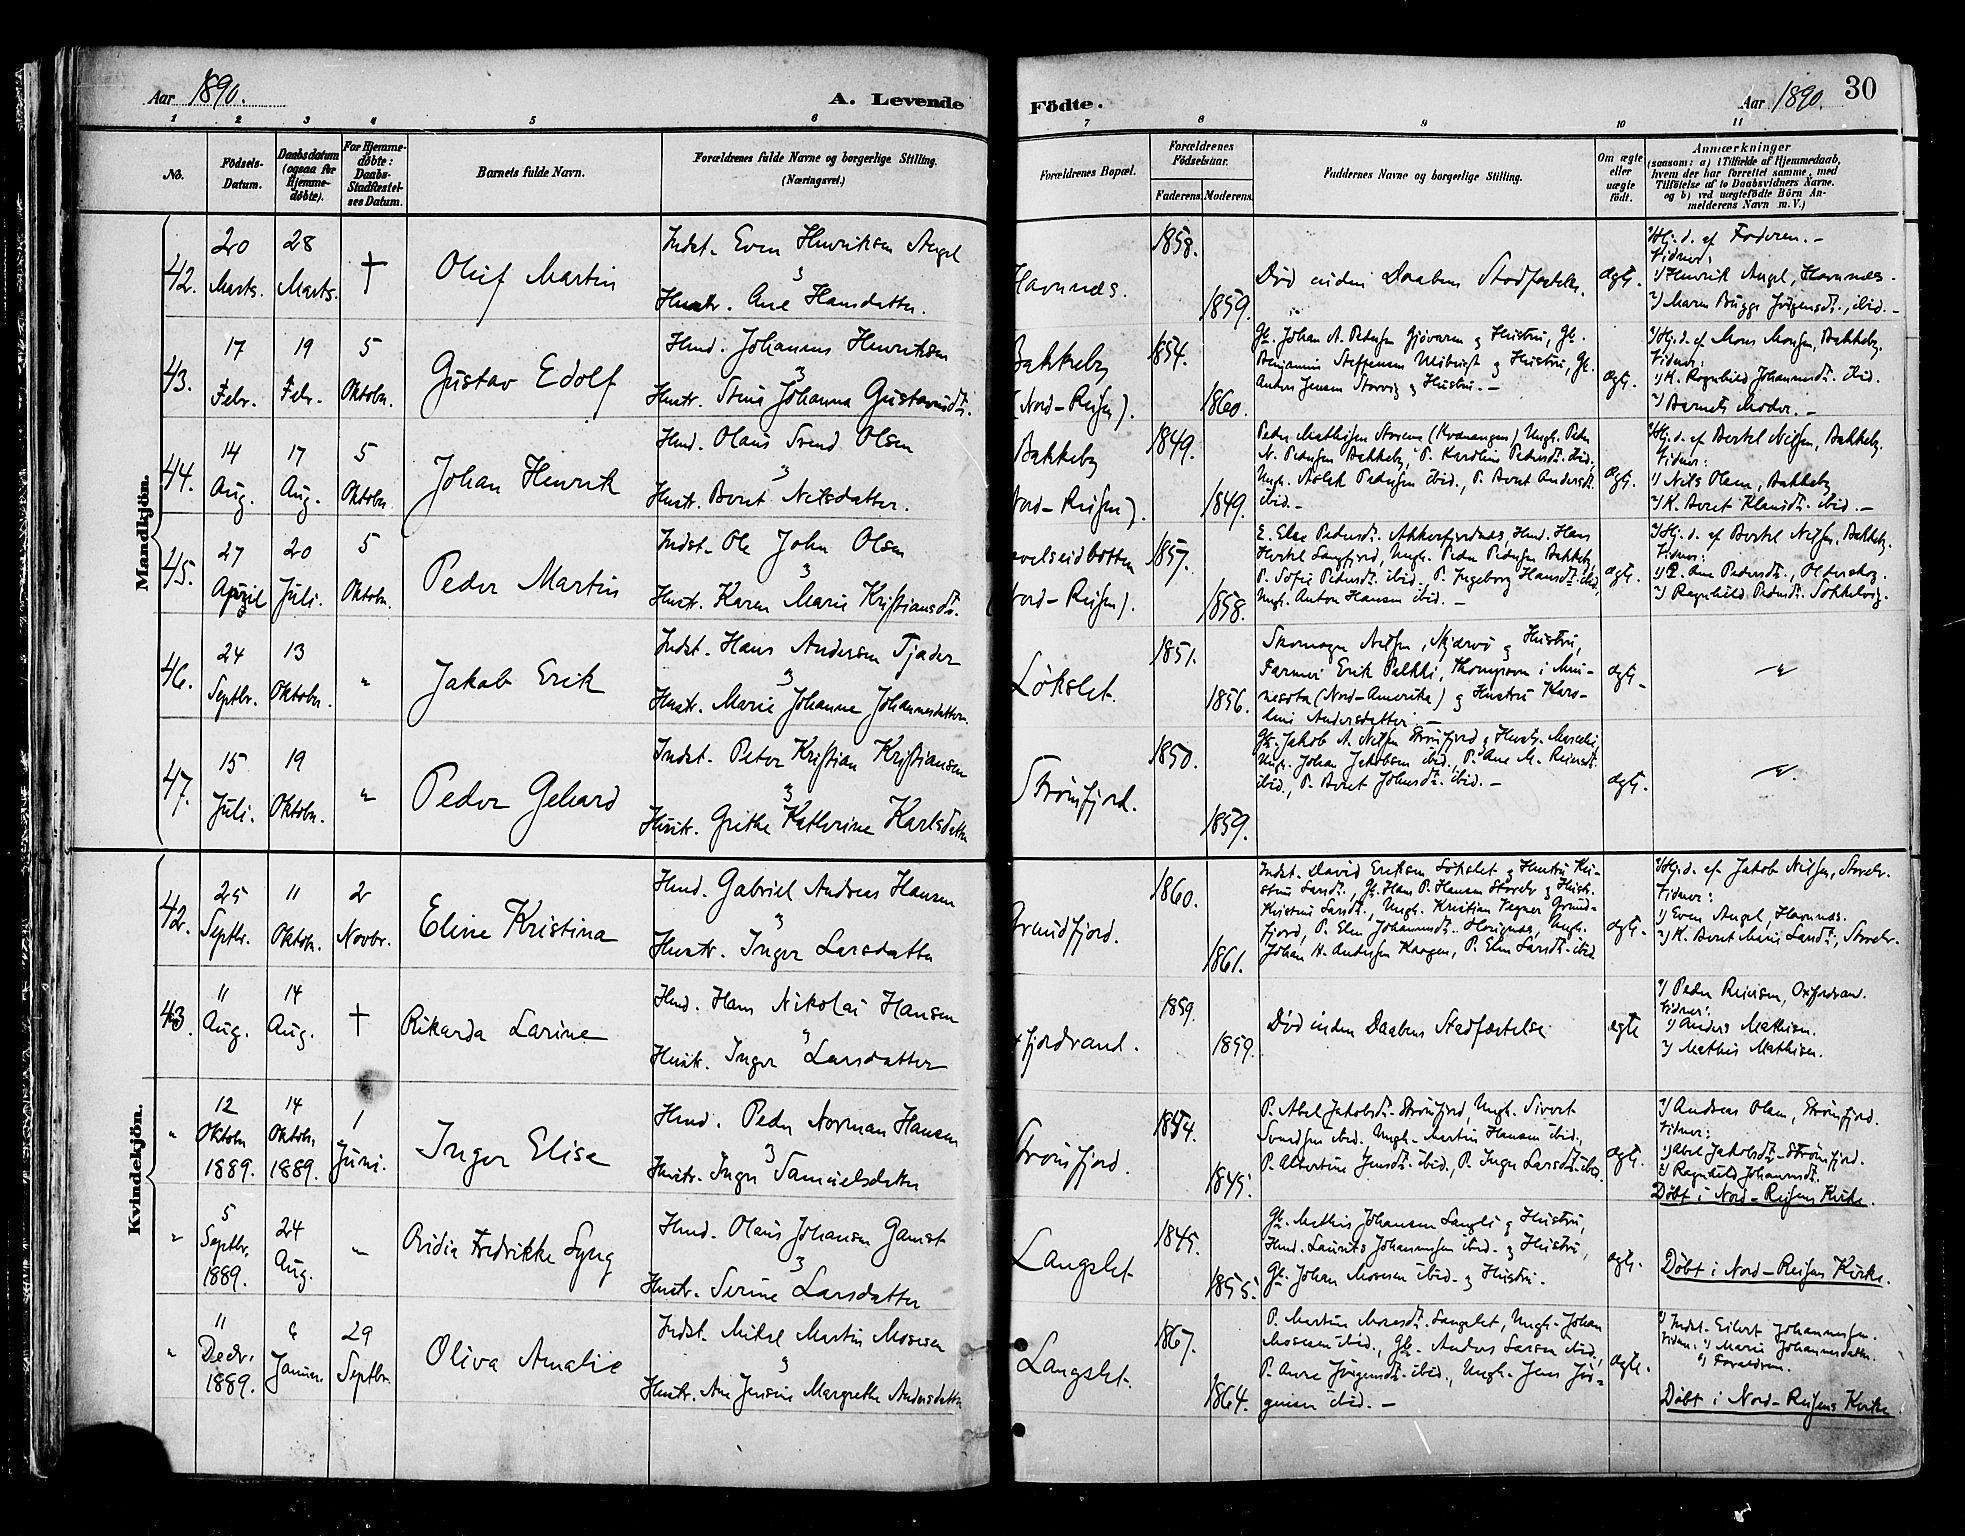 Aar 1890.
A. Levende
Födte.
Aar 1890. 30
1 2 3 4 5 6 7 8 9 10 11
No.
Födsels-Datum.
Daabsdatum (ogsaa for Hjemme-döbte).
For Hjemme-döbte: Daabs-Stadfæstel-ses Datum.
Barnets fulde Navn.
Forældrenes fulde Navne og borgerlige Stilling.
(Næringsvei.)
Forældrenes Bopæl.
Forældrenes Födselsaar.
Faderens. Moderens.
Faddernes Navne og borgerlige Stilling.
Om ægte eller uægte födt.
Anmærkninger
(saasom: a) i Tilfælde af Hjemmedaab,
hvem der har forrettet samme, med
Tilföielse af to Daabsvidners Navne.
og b) ved uægtefödte Börn An-
melderens Navn m. V.)
Mandkjön.
42. 20 Marts. 28 Marts. † Oluf Martin
Indst. Even Henriksen Angel
Hustr. Ane Hansdatter.
Havnnes. 1858. 1859.
Död inden Daabens Stadfæstelse.
ægte.
Hj. d. af Faderen. -
Vidner:
1) Henrik Angel, Havnnes. -
2) Maren Bugge Jörgensdt., ibid. -
43. 17 Febr. 19 Febr. 5 Oktober. Gustav Edolf
Hmd. Johannes Henriksen
Hustr. Stina Johanna Gustavsdt.
Bakkeby (Nord-Reisen). 1854. 1860.
Gb. Johan A. Pedersen Gjövaren og Hustru, Gb.
Benjamin Steffensen og Hustru, Gb.
Anders Jensen Storvig og Hustru. -
ægte.
Hj. d. af Mons Monsen, Bakkeby.
Vidner:
1) K. Ragnhild Johannesdt. ibid.
2) Barnets Moder. -
44. 14 Aug. 17 Aug. 5 Oktober. Johan Henrik
Hmd. Olaus Svend Olsen
Hustr. Beret Nilsdatter.
Bakkeby Nord-Reisen). 1849. 1849.
Peder Mathisen Storenes (Kvænangen) Ungk. Peder
N. Pedersen Bakkeby, P. Karoline Pedersdt. ibid.,
Ungk. Aslak Pedersen ibid., P. Beret Andersdt.
ibid. -
ægte.
Hj. d. af Bertel Nilsen, Bakkeby.
Vidner:
1) Nils Olsen, Bakkeby
2) K. Beret Klausdt. ibid. -
45. 27 April 20 Juli. 5 Oktober. Peder Martin
Indst. Ole John Olsen
Hustr. Karen Marie Kristiansdt.
Nord-Reisen). 1857. 1858.
E. Else Pedersdt. Akkarfjordnes, Hmd. Hans
Hertel Langfjord, Ungk. Peder Pedersen Bakkeby,
P. Sofie Pedersdt. ibid. P. Ingeborg Hansdt. ibid.
Ungk. Anton Hansen ibid. -
ægte.
Hj. d. af Bertel Nilsen, Bakkeby.
Vidner:
1) P. Ane Pedersdt., Olderskog.
2) Ragnhild Pedersdt. Sokkelvig.
46. 24 Septbr. 13 Oktober. " Jakob Erik
Indst. Hans Andersen Tjader
Hustr. Marie Johanne Johannesdatter.
Lökslet. 1851. 1856.
Skomager Nilsen, Skjærvö og Hustru,
Farmer Erik Palkki, Thompson i Min-
nesota (Nord-Amerika) og Hustru Karo-
line Andersdatter. -
ægte.
"
47. 15 Juli. 19 Oktober. " Peder Gehard
Indst. Peter Kristian Kristiansen
Hustr. Grethe Katherine Karlsdatter
Strömfjord. 1850. 1859.
Gb. Jakob A. Nilsen Strömfjord og Hustr. Marselie,
Ungk. Johan Jakobsen ibid., P. Ane M. Reiersdt.
ibid., P. Beret Johnsdt. ibid. -
ægte.
"
Kvindekjön.
42. 25 Septbr. 11 Oktober. 2 Novbr. Eline Kristina
Hmd. Gabriel Andreas Hansen
Hustr. Inger Larsdatter
Grundfjord. 1860. 1861.
Indst. David Eriksen Lökslet og Hustru Kri-
stine Larsdt., Gb. Hans P. Hansen Storelv og Hustr.
Kristine Larsdt., Ungk. Kristian Vegner Grund-
fjord, P. Elen Johannesdt. , Ungk.
Johan H. Andersen Kaagen, P. Elen Larsdt. ibid.
ægte.
Hj. d. af Jakob Nilsen, Storelv.
Vidner:
1) Even Angel, Havnnes.
2) K. Beret Marie Larsdt., Storelv.
43. 11 Aug. 14 Aug. † Rikarda Larine
Hmd. Hans Nikolai Hansen
Hustr. Inger Larsdatter
fjordvand. 1859. 1859.
Död inden Daabens Stadfæstelse
egte
1) Peder Reiersen, Oxfjordvan.
Vidner:
1) Anders Mathisen.
2) Mathis Mathisen.
" 12 Oktober 1889. 14 Oktober 1889. 1 Juni. Inger Elise
Hmd. Peder Norman Hansen
Hustr. Inger Samuelsdatter
Strömfjord. 1854. 1845.
P. Abel Jakobsdt. Strömfjord, Ungk. Sivert
Svendsen ibid. Ungk. Martin Hansen ibid.,
P. Albertine Jensdt. ibid., P. Inger Larsdt. ibid.
ægte.
1) Andreas Olsen, Strömfjord.
Vidner:
1) Abel Jakobsdt. Strömfjord.
2) Ragnhild Johannesdt.
Döbt i Nord-Reisens Kirke.
" 5 Septbr. 1889. 24 Aug. " Ovidia Fredrikke Lyng
Hmd. Olaus Johansen Gamst
Hustr. Serine Larsdatter
Langslet. 1845. 1855.
Gb. Mathis Johansen Langsl. og Hustru,
Hmd. Laurits Johannesen ibid. og Hustru,
Gb. Johan Mosesen ibid. og Hustru.
ægte.
Döbt i Nord-Reisens Kirke.
" 11 Decbr. 1889. 6 Januar. 29 Septbr. Oliva Amalie
Indst. Mikal Martin Mosesen
Hustr. Ane Jensine Margrethe Andersdatter
Langslet. 1867. 1864.
P. Martine Mosesdt. Langslet, Ungk. Johan
Mosesen ibid., Gb. Anders Larsen ibid.,
P. Anne Jörgensdt. ibid., Ungk. Jens Jör-
gensen ibid. -
ægte.
1) Indst. Eilert Johannesen.
Vidner: 1) Marie Johannesdatter.
2) Forældrene.
Döbt i Nord-Reisens Kirke